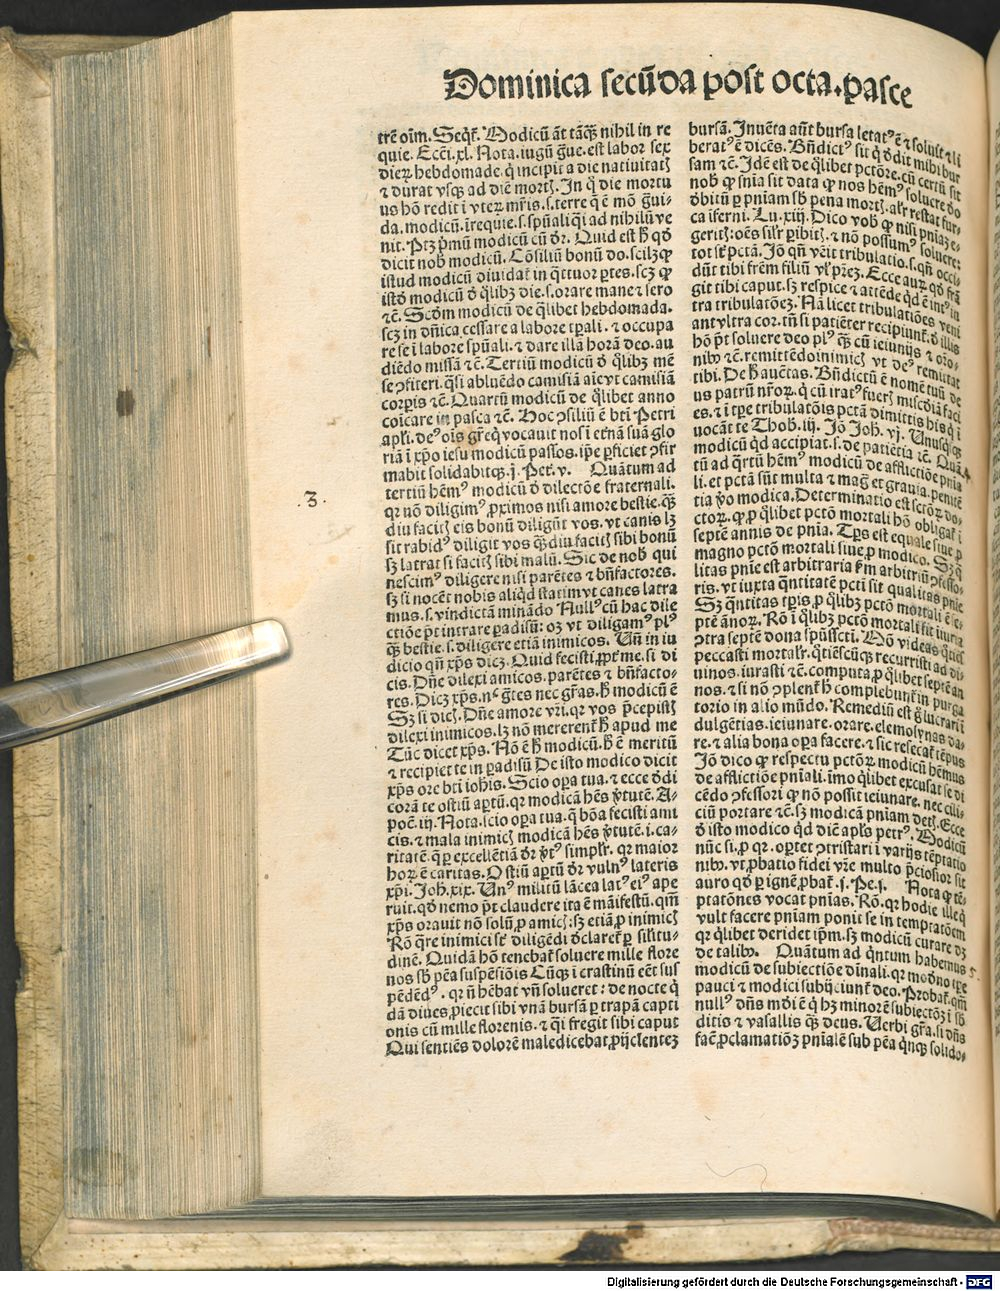 Dominica secūda post octa.pasce
trē oīm. Seqt̄. Modicū āt tāq̄ꝫ nihil in re
quie. Ecci.xl. Nota. iugū gͣue. est labor sex
dieꝝ hebdomade. q̄ incipit a die natiuitatꝭ
⁊ durat vsqꝫ ad diē mortꝭ. In q̄ die mortu
us hō redit ī vteꝝ mr̄is. s. terre q̄ ē mō gͣui-
da. modicū. ī requie. s. spūali qͥ ad nihilū ve
nit. Ptꝫ pͥmū modicū cū dr̄. Quid est h̄ qd̓
dicit nob̓ modicū. Cōsiliū bonū do. scilꝫ ꝙ
istud modicū diuidat̄ in q̄ttuor ꝑtes. scꝫ ꝙ
istd̓ modicū d̓ q̄libꝫ die. s. orare mane ⁊ sero
⁊c̄. Scd̓m modicū de q̄libet hebdomada.
scꝫ in dn̄ica cessare a labore tꝑali. ⁊ occupa
re se ī labore spūali. ⁊ dare illā horā deo. au
diēdo missā ⁊c̄. Tertiū modicū d̓ q̄libꝫ mē
se ꝯfiteri. q̄si abluēdo camisiā aīe vt camisiā
corꝑis ⁊c̄. Quartū modicū de q̄libet anno
cōicare in pasca ⁊c̄. Hoc ꝯsiliū ē bt̄i Petri
apl̓i. deꝰ oīs gr̄e q̄ vocauit nos ī et̓nā suā glo
riā ī xp̄o iesu modicū passos. ip̄e ꝑficiet ꝯfir
mabit solidabitqꝫ. j. Pet̓. v. Quātum ad
tertiū hēmꝰ modicū d̓ dilectōe fraternali.
qr nō diligimꝰ ꝓximos nisi amore bestie. q̄ꝫ
diu facitꝭ eis bonū diligūt vos. vt canis lꝫ
sit rabidꝰ diligit vos q̄ꝫdiu facitꝭ sibi bonū
sꝫ latrat si facitꝭ sibi malū. Sic de nob̓ qui
nescimꝰ diligere nisi parētes ⁊ bn̄factores.
sꝫ si nocēt nobis aliqͥd statim vt canes latra
mus. s. vindictā mināndo Nullꝰ cū hac dile
ctiōe pt̄ intrare ꝑadisū: oꝫ vt diligamꝰ plꝰ
q̄ꝫ bestie. s. diligere etiā inimicos. Vn̄ in iu
dicio qn̄ xp̄s dicꝫ. Quid fecisti ꝓpt̓ me. si di
cis. Dn̄e dilexi amicos. parētes ⁊ bn̄facto-
res. Dicꝫ xp̄s. nᶜ gētes nec gr̄as. h̄ modicū ē
Sꝫ si dicꝭ. Dn̄e amore vr̄i. qr vos p̄cepistꝭ
dilexi inimicos. lꝫ nō mererent̄ h̄ apud me
Tūc dicet xp̄s. Nō ē h̄ modicū. h̄ ē meritū
⁊ recipiet te in ꝑadisū De isto modico dicit
xp̄s ore bt̄i ioh̄is. Scio oꝑa tua. ⁊ ecce d̓di
corā te ostiū aꝑtū. qr modicā hēs v̓tutē. A-
poc̄. iij. Nota. scio oꝑa tua. q̄ bōa fecisti ami
cis. ⁊ mala inimicꝭ modicā hēs v̓tutē. i. ca-
ritatē. q̄ ꝑ excellētiā dr̄ v̓tꝰ simplr̄. qr maior
hoꝝ ē caritas. Ostiū aꝑtū dr̄ vulnꝰ lateris
xp̄i. Joh̄. xix. Vnꝰ militū lācea latꝰ eiꝰ ape
ruit. qd̓ nemo pt̄ claudere ita ē māifestū. qm̄
xp̄s orauit nō solū ꝓ amicꝭ: sꝫ etiā ꝓ inimicꝭ
Rō q̄re inimici sīt diligēdi d̓claret̄ ꝑ sil̓itu-
dinē. Quidā hō tenebat̄ soluere mille flore
nos sb̓ pēa suspēsiōis Cūqꝫ ī crastinū eēt sus
pēdēdꝰ. qr n̄ hēbat vn̄ solueret: de nocte q̓
dā diues ꝓiecit sibi vnā bursā ꝑ trapā capti
onis cū mille florenis. ⁊ qͥ fregit sibi caput
Qui sentiēs dolorē maledicebat ꝓijcientez
3.
bursā. Inuēta aūt bursa letatꝰ ē ⁊ soluit ⁊ li
beratꝰ ē dicēs. Bn̄dictꝰ sit q̓ d̓dit mihi bur
sam ⁊c̄. Idē est de q̄libet pctōre. cū certū sit
nob̓ ꝙ sn̄ia sit data ꝙ nos hēmꝰ soluere d̓o
d̓bitū ꝑ pn̄iam sb̓ pena mortꝭ. alr̄ restat fur-
ca iferni. Lu. xiij. Dico vob̓ ꝙ nisi pn̄iaꝫ e-
geritꝭ: oēs sil̓r ꝑibitꝭ. ⁊ nō possumꝰ soluere:
tot st̄ pctā. Jō qn̄ vēit tribulatio. s. qn̄ occi-
dūt tibi frēm filiū vl̓ pr̄eꝫ. Ecce auꝝ qd̓ frā
git tibi caput. sꝫ respice ⁊ attēde qͥd ē intꝰ in
tra tribulatōeꝫ. Nā licet tribulatiōes veni
ant vltra cor. tn̄ si patiēter recipiunt̄. d̓ illis
hō pt̄ soluere deo plꝰ q̄ꝫ cū ieiunijs ⁊ or̄o-
nibꝰ ⁊c̄. remittēdo inimicꝭ vt deꝰ remittat
tibi. De h̄ auētas. Bn̄dictū ē nomē tuū de
us patrū nr̄oꝝ. q̓ cū iratꝰ fuerꝭ mīscd̓iā faci
es. ⁊ ī tꝑe tribulatōis pctā dimittis his q̓ ī
uocāt te Thob. iij. Jō Joh̄. vj. Vnusqͥsqꝫ
modicū qͥd accipiat. s. de patiētia ⁊c̄. Quā
tū ad q̄rtū hēmꝰ modicū de afflictiōe pnīa
li. et pctā sūt multa ⁊ magͣ et grauia. penitē
tia v̓o modica. Determinatio est scōꝝ do-
ctoꝝ. ꝙ ꝓ q̄libet pctō mortali hō obligat̄ ī
septē annis de pn̄ia. Tꝑs est equale siue ꝓ
magno pctō mortali siue ꝓ modico. Sꝫ q̄
litas pn̄ie est arbitraria ẜm arbitriū ꝯfesso-
ris. vt iuxta q̄ntitatē pcti sit qualitas pn̄ie
Sꝫ q̄ntitas tꝑis. ꝓ q̄libꝫ pctō mortali ē se-
ptē ānoꝝ. Rō ī q̄libꝫ pctō mortali fit iniuria
ꝯtra septē dona spūssct̄i. Mō videas quot
peccasti mortalr̄. q̄tiēscūqꝫ recurristi ad di-
uinos. iurasti ⁊c̄. computa. ꝓ q̄libet septē an
nos. ⁊ si nō ꝯplent̄ h̄ complebunt̄ in purga
torio in alio mūdo. Remediū est g̓ lucrari ī
dulgētias. ieiunare. orare. elemosynas da-
re. ⁊ alia bona oꝑa facere. ⁊ sic resecat̄ tēpus
Jō dico ꝙ respectu pctōꝝ modicū hēmus
de afflictiōe pn̄iali. īmo q̄libet excusat se di
cēdo ꝯfessori ꝙ nō possit ieiunare. nec cili-
ciū portare ⁊c̄. sꝫ modicā pn̄iam detꝭ. Ecce
d̓ isto modico qͥd diē apl̓s petrꝰ. Modicū
nūc si. ꝓ qr. oꝑtet ꝯtristari ī varijs tēptatio
nibꝰ. vt ꝓbatio fidei vr̄e multo p̄ciosior sit
auro qd̓ ꝑ ignē ꝓbat̄. j. Pe. j. Nota ꝙ tē-
ptatōnes vocat pn̄ias. Rō. qr hodie ille q̓
vult facere pn̄iam ponit se in temptatōem
qr q̄libet deridet ip̄m. sꝫ modicū curare dꝫ
de talibꝰ. Quātum ad q̄ntum habemus
modicū de subiectiōe diuali. qr mod̓no tꝑe
pauci ⁊ modici subijciunt̄ deo. Probat̄. qm̄
nullꝰ dn̄s mūdi ē q̓ hꝫ minorē subiectōꝫ ī sb̓
ditis ⁊ vasallis q̄ꝫ deus. Verbi gr̄a. si dn̄s
fac̄ ꝓclamatiōꝫ pn̄ialē sub pēa qͥnqꝫ solido-
5.
Digitalisierung gefördert durch die Deutsche Forschungsgemeinschaft - DFG